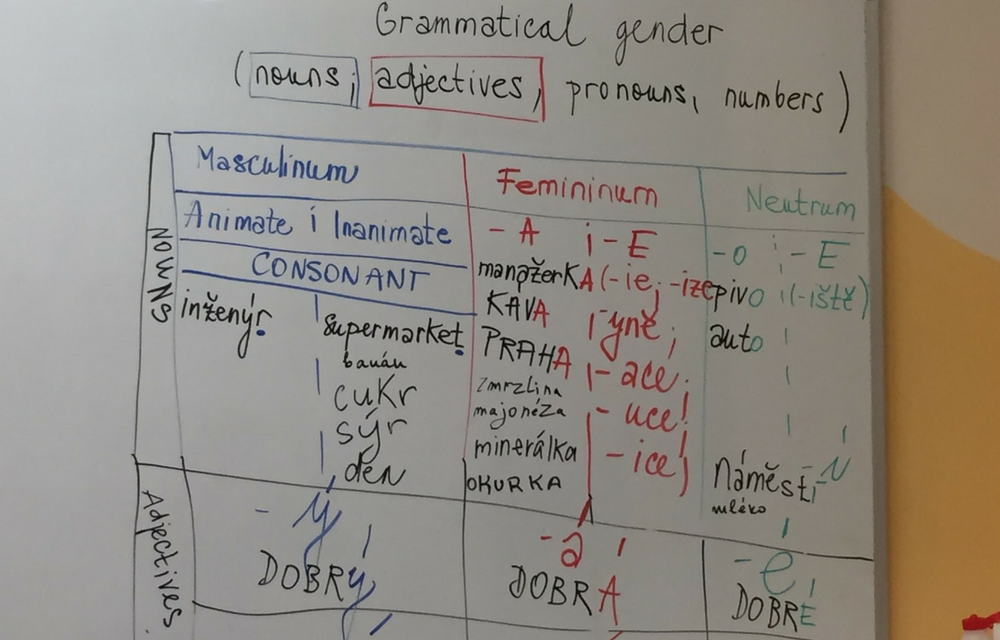 Grammatical gender
(nouns, adjectives, pronouns, numbers)
NOUNS
Masculinum
Animate i Inanimate
CONSONANT
inženýr
supermarket
banán
cukr
sýr
den
Femininum
- A i - E
manažerKA (-ie, -ize
KAVA - yně,
PRAHA - ace,
zmrzlina
majonéza - uce,
minerálka - ice)
OKURKA
Neutrum
- o - E
pivo (-iště)
auto
náměstí
mléko
Adjectives
- ý
DOBRÝ
- á
DOBRÁ
- é
DOBRÉ